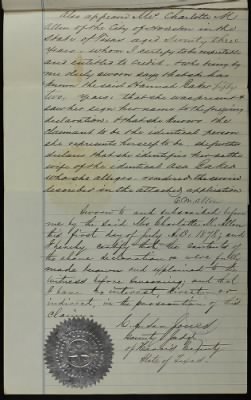 Also appeared Mrs. Charlotte M.
Allen of the City of Houston in the
State of Texas aged seventy three
years. whom I certify to be respectable
and entitled to credit. & who being by
me duly sworn says that she has
known the said Hannah Baker fifty
two years: that she was present &
saw her sign her name to the foregoing
declaration. & that she knows the
claimant to be the identical person
she represents herself to be. She further
declares that she identifies her as the
wife of the identical Asa Baker
who she alleges rendered the service
described in the attached application
C. M. Allen
Sworn to and subscribed before
me by the said Mrs Charlotte M. Allen
this first day of July A.D. 1878; and
I hereby certify that the contents of
the above declaration &c were fully
made known and explained to the
witness before swearing; and that
I have no interest, direct or
indirect, in the prosecution of this
claim.
Jones
County Judge
of Harris County
State of Texas.